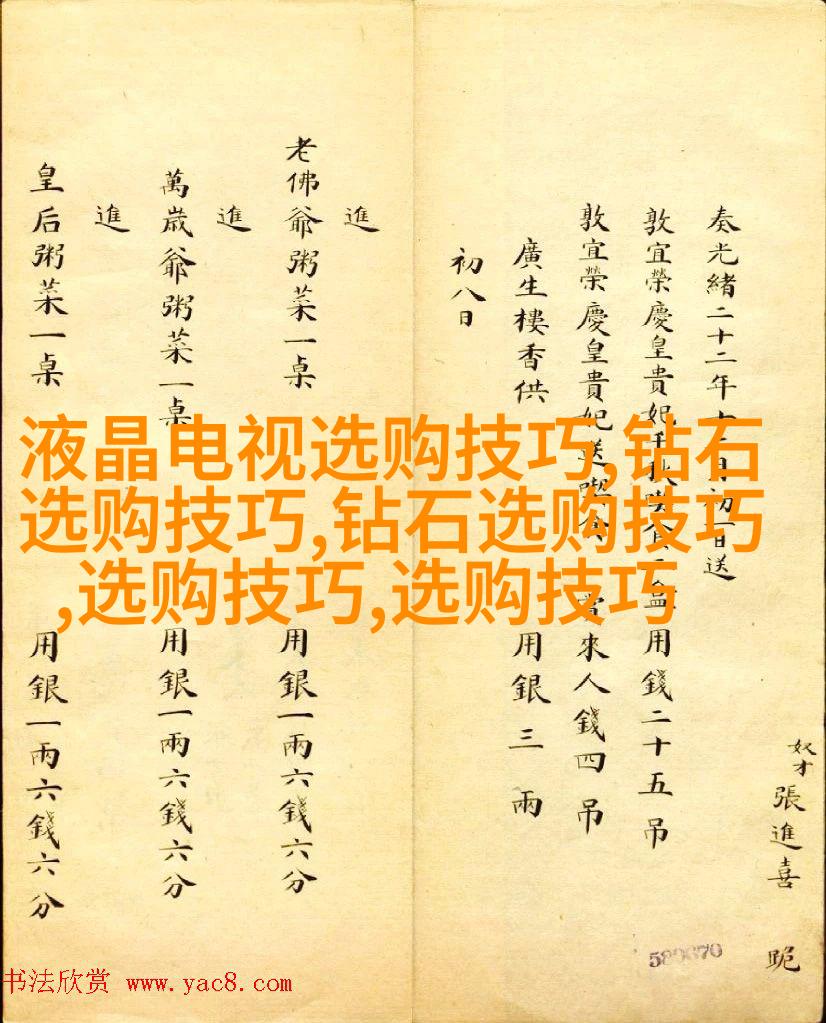 奴才張進喜 跪
奏光緒二十二年十月初日送
敦宜榮慶皇貴妃千秋喫食盒用錢二十五吊
敦宜榮慶皇貴妃送喫食 賞來人錢四吊
廣生樓香供 用銀三兩
初八日
進
老佛爺粥菜一桌 用銀一兩六錢六分
進
萬歲爺粥菜一桌 用銀一兩六錢六分
進
皇后粥菜一桌 用銀一兩六錢六分
液晶电视选购技巧,钻石
选购技巧,钻石选购技巧
,选购技巧,选购技巧
书法欣赏 www.yac8.com